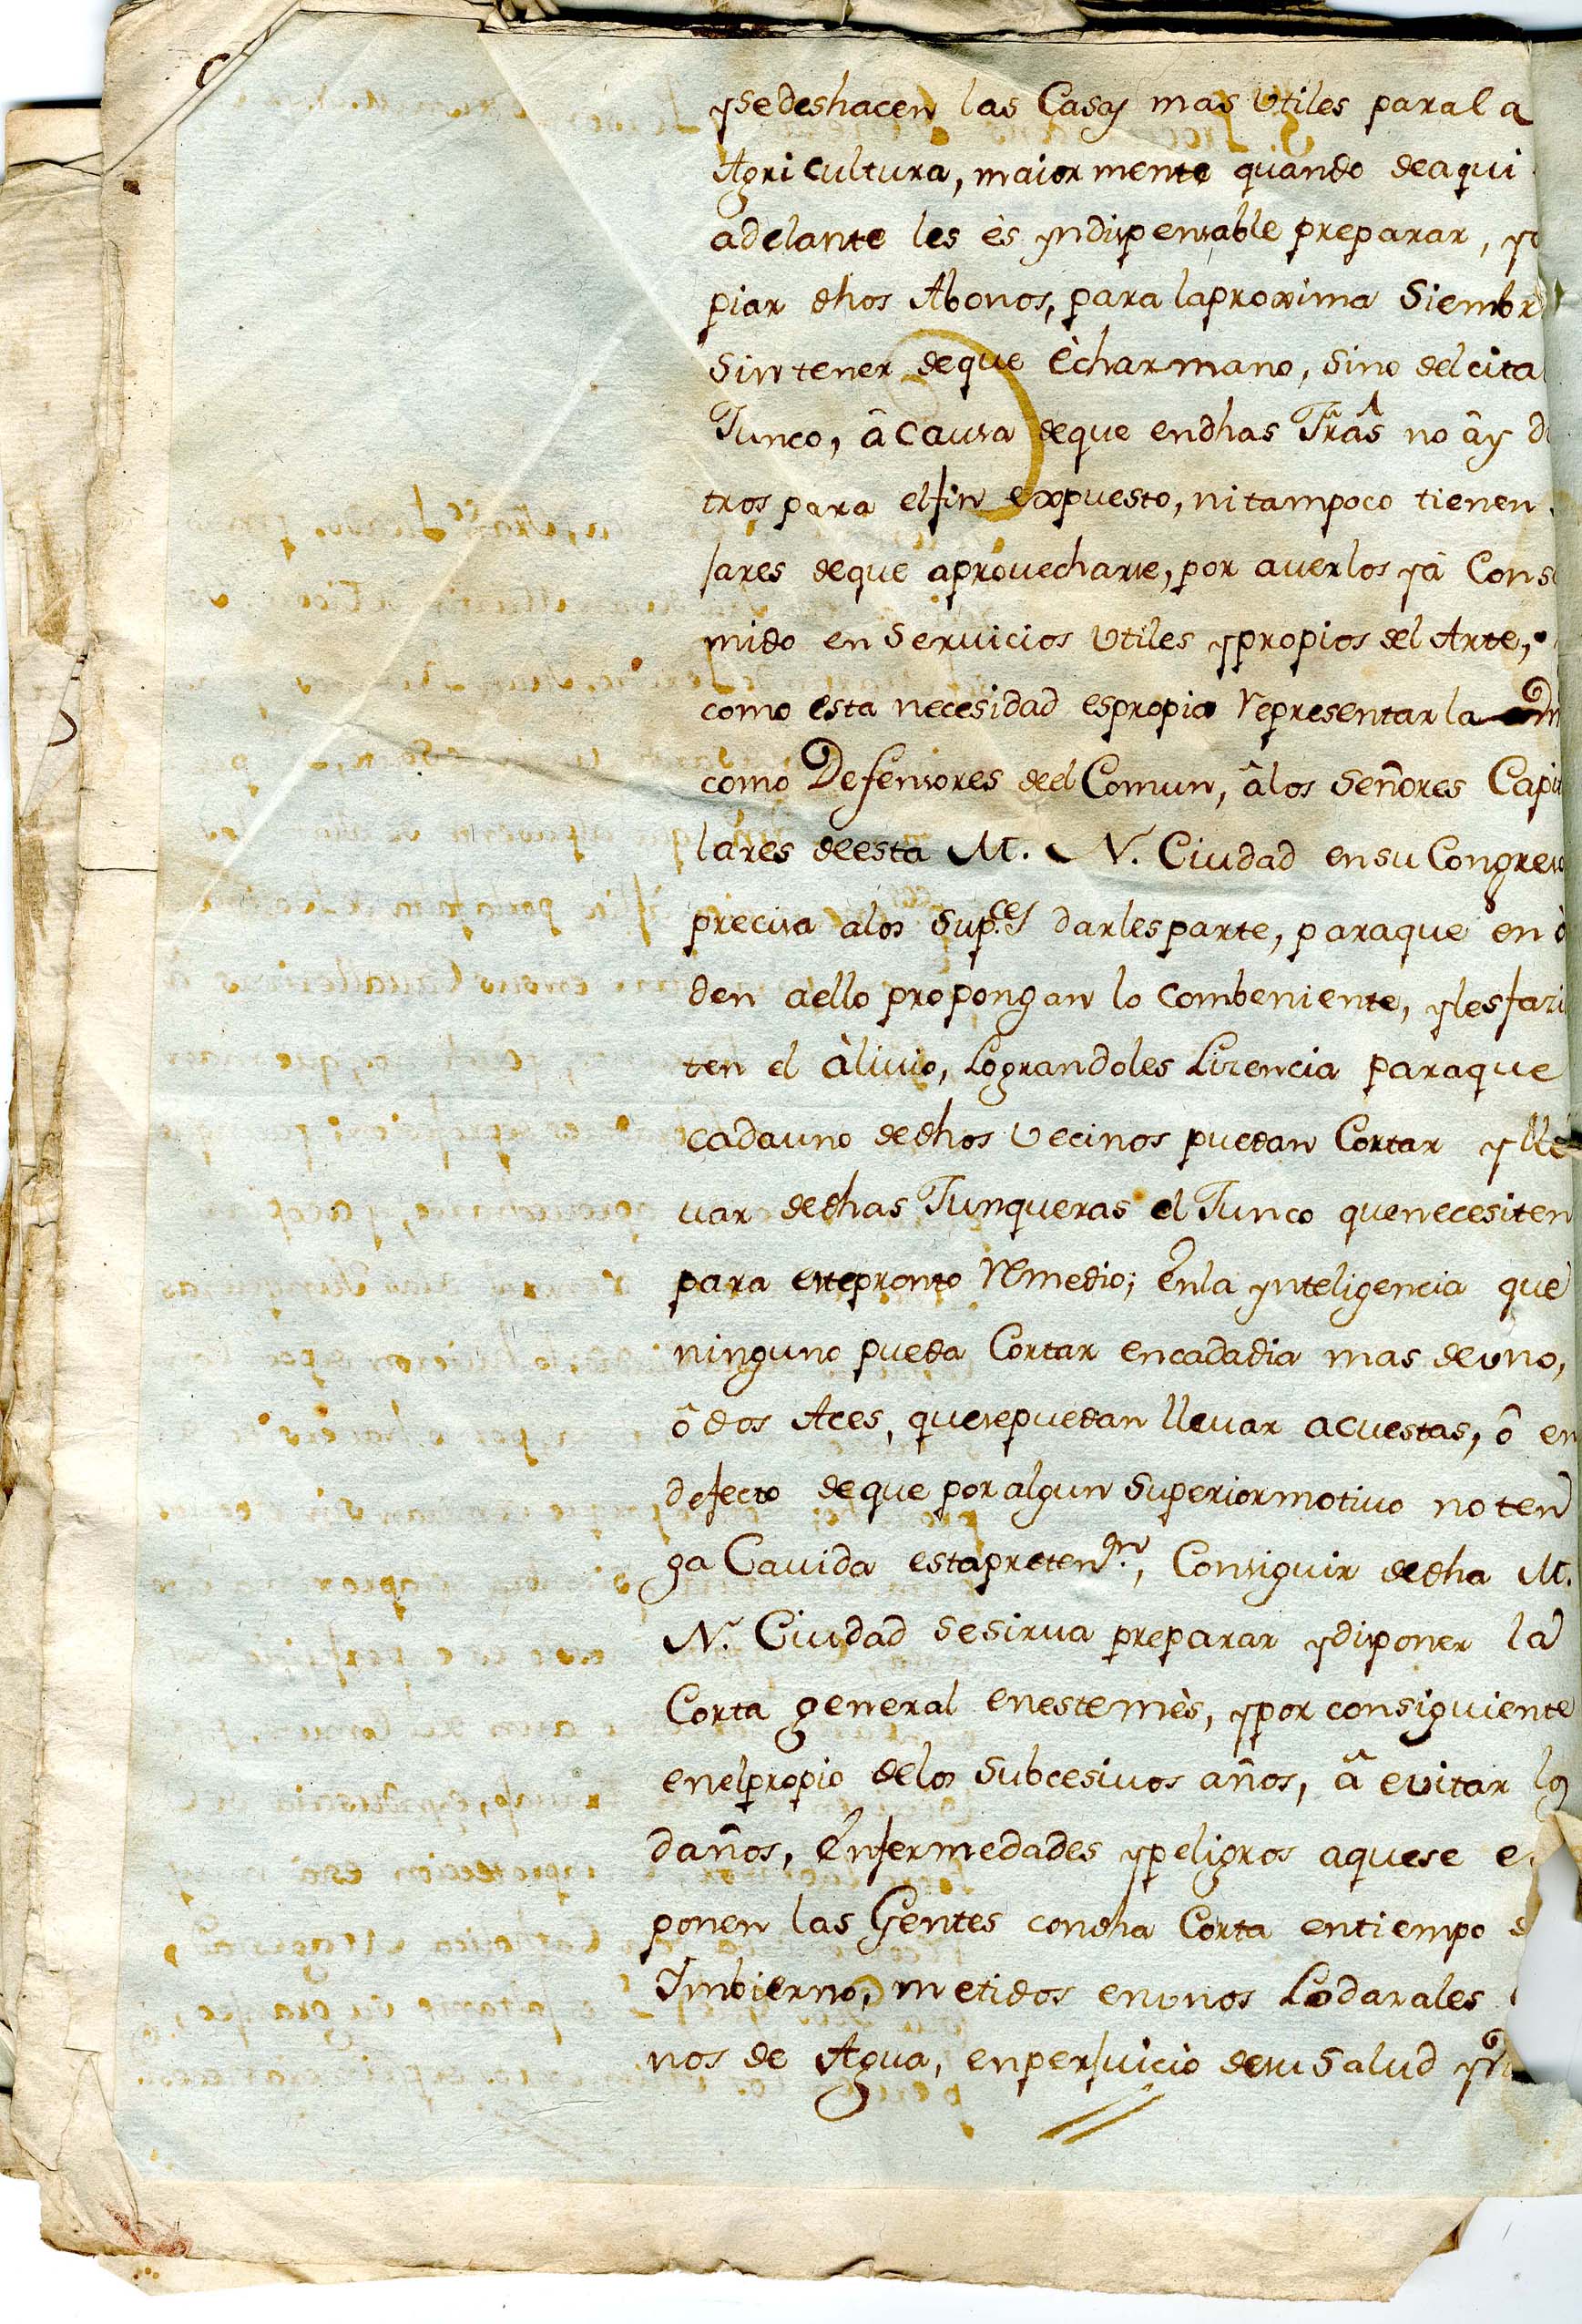 ysedeshacen las Casas mas Utiles parala
Agricultura, maiormente quando deaqui
adelante les ès yndispensable preparar, y
piar dhos Abonos, para laproxima Siembr
Sin tener deque Echarmano, Sino del cita
Junco, â causa deque endhas Trâs no ây
tros para elfin expuesto, nitampoco tienen
jares deque aprovecharse, por averlos yà Cons
mido en Servicios Utiles ypropios del Arte,
como esta necesidad espropia representarla
como Defensores deel Comun, âlos Señores Capi
lares deesta M. N. Ciudad ensu Congreso
precisa alos Sup.ces darlesparte, paraque en
den aello propongan lo combeniente, ylesfaci
ten el àlivio, Lograndoles Licencia paraque
cadauno dedhos Vecinos puedan Cortar ylle
var dedhas Junqueras el Junco quenecesiten
para estepronto remedio; Enla ynteligencia que
ninguno pueda Cortar encadadia mas deuno,
ô dos Aces, quesepuedan llevar acuestas, ô en
defecto deque poralgun Superiormotivo noten
ga Cavida estapreten.on, Consiguir dedha M.
N. Ciudad Sesirva preparar ydisponer la
Corta general enestemès, ypor consiguiente
enelpropio delos Subcesivos años, â evitar los
daños, Enfermedades ypeligros aquese e
ponen las Gentes condha Corta entiempo
Imbierno, metidos enunos Lodarales
nos de Agua, enperjuicio desu Salud